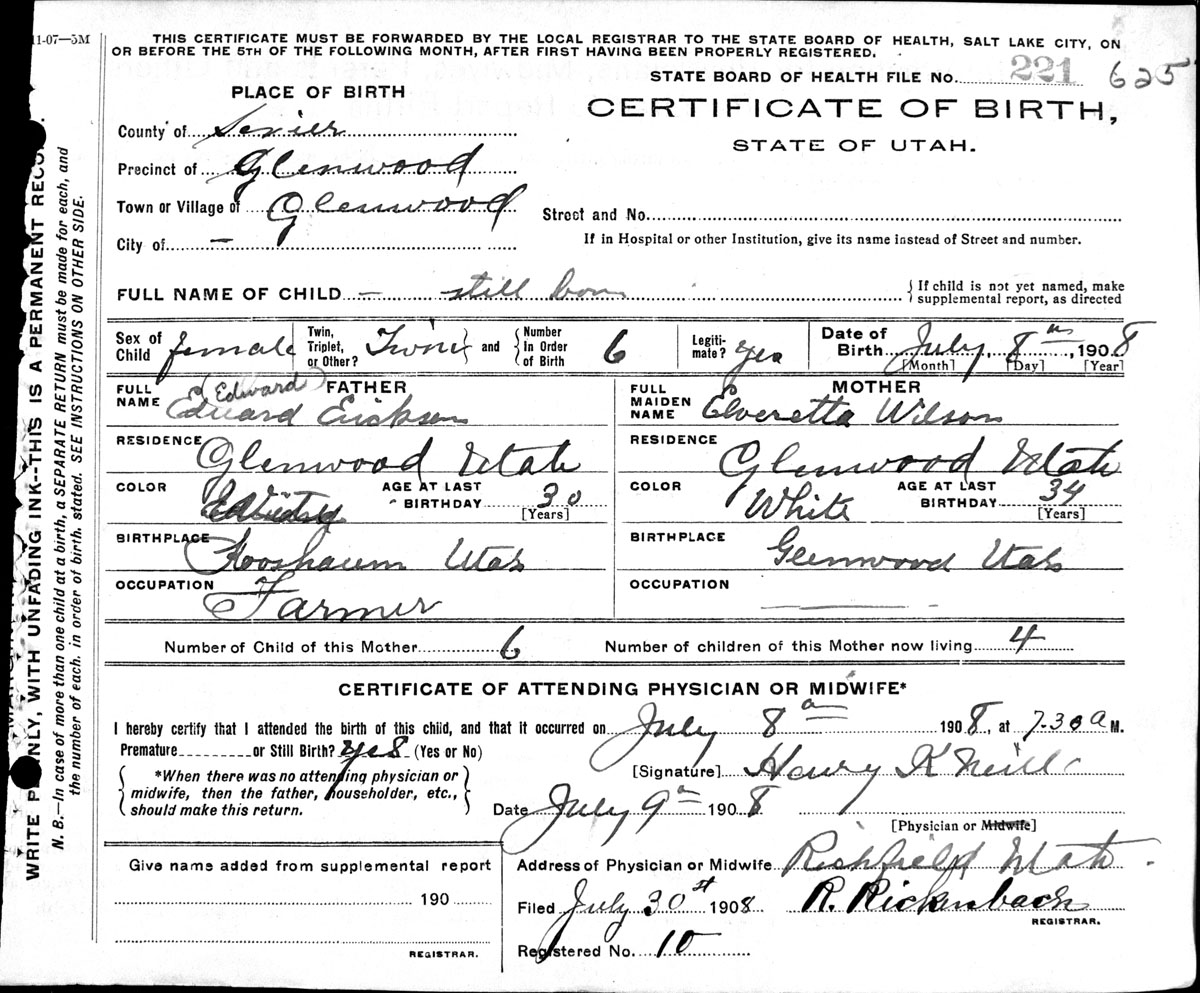 11-07—3M
THIS CERTIFICATE MUST BE FORWARDED BY THE LOCAL REGISTRAR TO THE STATE BOARD OF HEALTH, SALT LAKE CITY, ON
OR BEFORE THE 5TH OF THE FOLLOWING MONTH, AFTER FIRST HAVING BEEN PROPERLY REGISTERED.
STATE BOARD OF HEALTH FILE No. 221 625
PLACE OF BIRTH
CERTIFICATE OF BIRTH,
STATE OF UTAH.
County of Sevier
Precinct of Glenwood
Town or Village of Glenwood
Street and No.
City of —
If in Hospital or other Institution, give its name instead of Street and number.
FULL NAME OF CHILD — still born
{ If child is not yet named, make
supplemental report, as directed
Sex of Child female
Twin, Triplet, or Other? and { Number In Order of Birth 6
Legitimate? yes
Date of Birth July 8th, 1908
[Month] [Day] [Year]
FATHER
FULL NAME (Edward) Edward Erickson
RESIDENCE Glenwood Utah
COLOR
AGE AT LAST BIRTHDAY 30
[Years]
BIRTHPLACE Utah
OCCUPATION Farmer
MOTHER
FULL MAIDEN NAME Elveretta Wilson
RESIDENCE Glenwood Utah
COLOR White
AGE AT LAST BIRTHDAY 34
[Years]
BIRTHPLACE Glenwood Utah
OCCUPATION —
Number of Child of this Mother 6 Number of children of this Mother now living 4
CERTIFICATE OF ATTENDING PHYSICIAN OR MIDWIFE*
I hereby certify that I attended the birth of this child, and that it occurred on July 8th 1908, at 7-30 a M.
Premature or Still Birth? yes (Yes or No)
*When there was no attending physician or
midwife, then the father, householder, etc.,
should make this return.
[Signature] Henry K Neill
Date July 9th 1908
[Physician or Midwife]
Give name added from supplemental report
190
REGISTRAR.
Address of Physician or Midwife Richfield Utah.
Filed July 30st 1908 R. Rickenbach
REGISTRAR.
Registered No. 10
WRITE PLAINLY, WITH UNFADING INK--THIS IS A PERMANENT RECORD.
N. B.—In case of more than one child at a birth, a SEPARATE RETURN must be made for each, and
the number of each, in order of birth, stated. SEE INSTRUCTIONS ON OTHER SIDE.